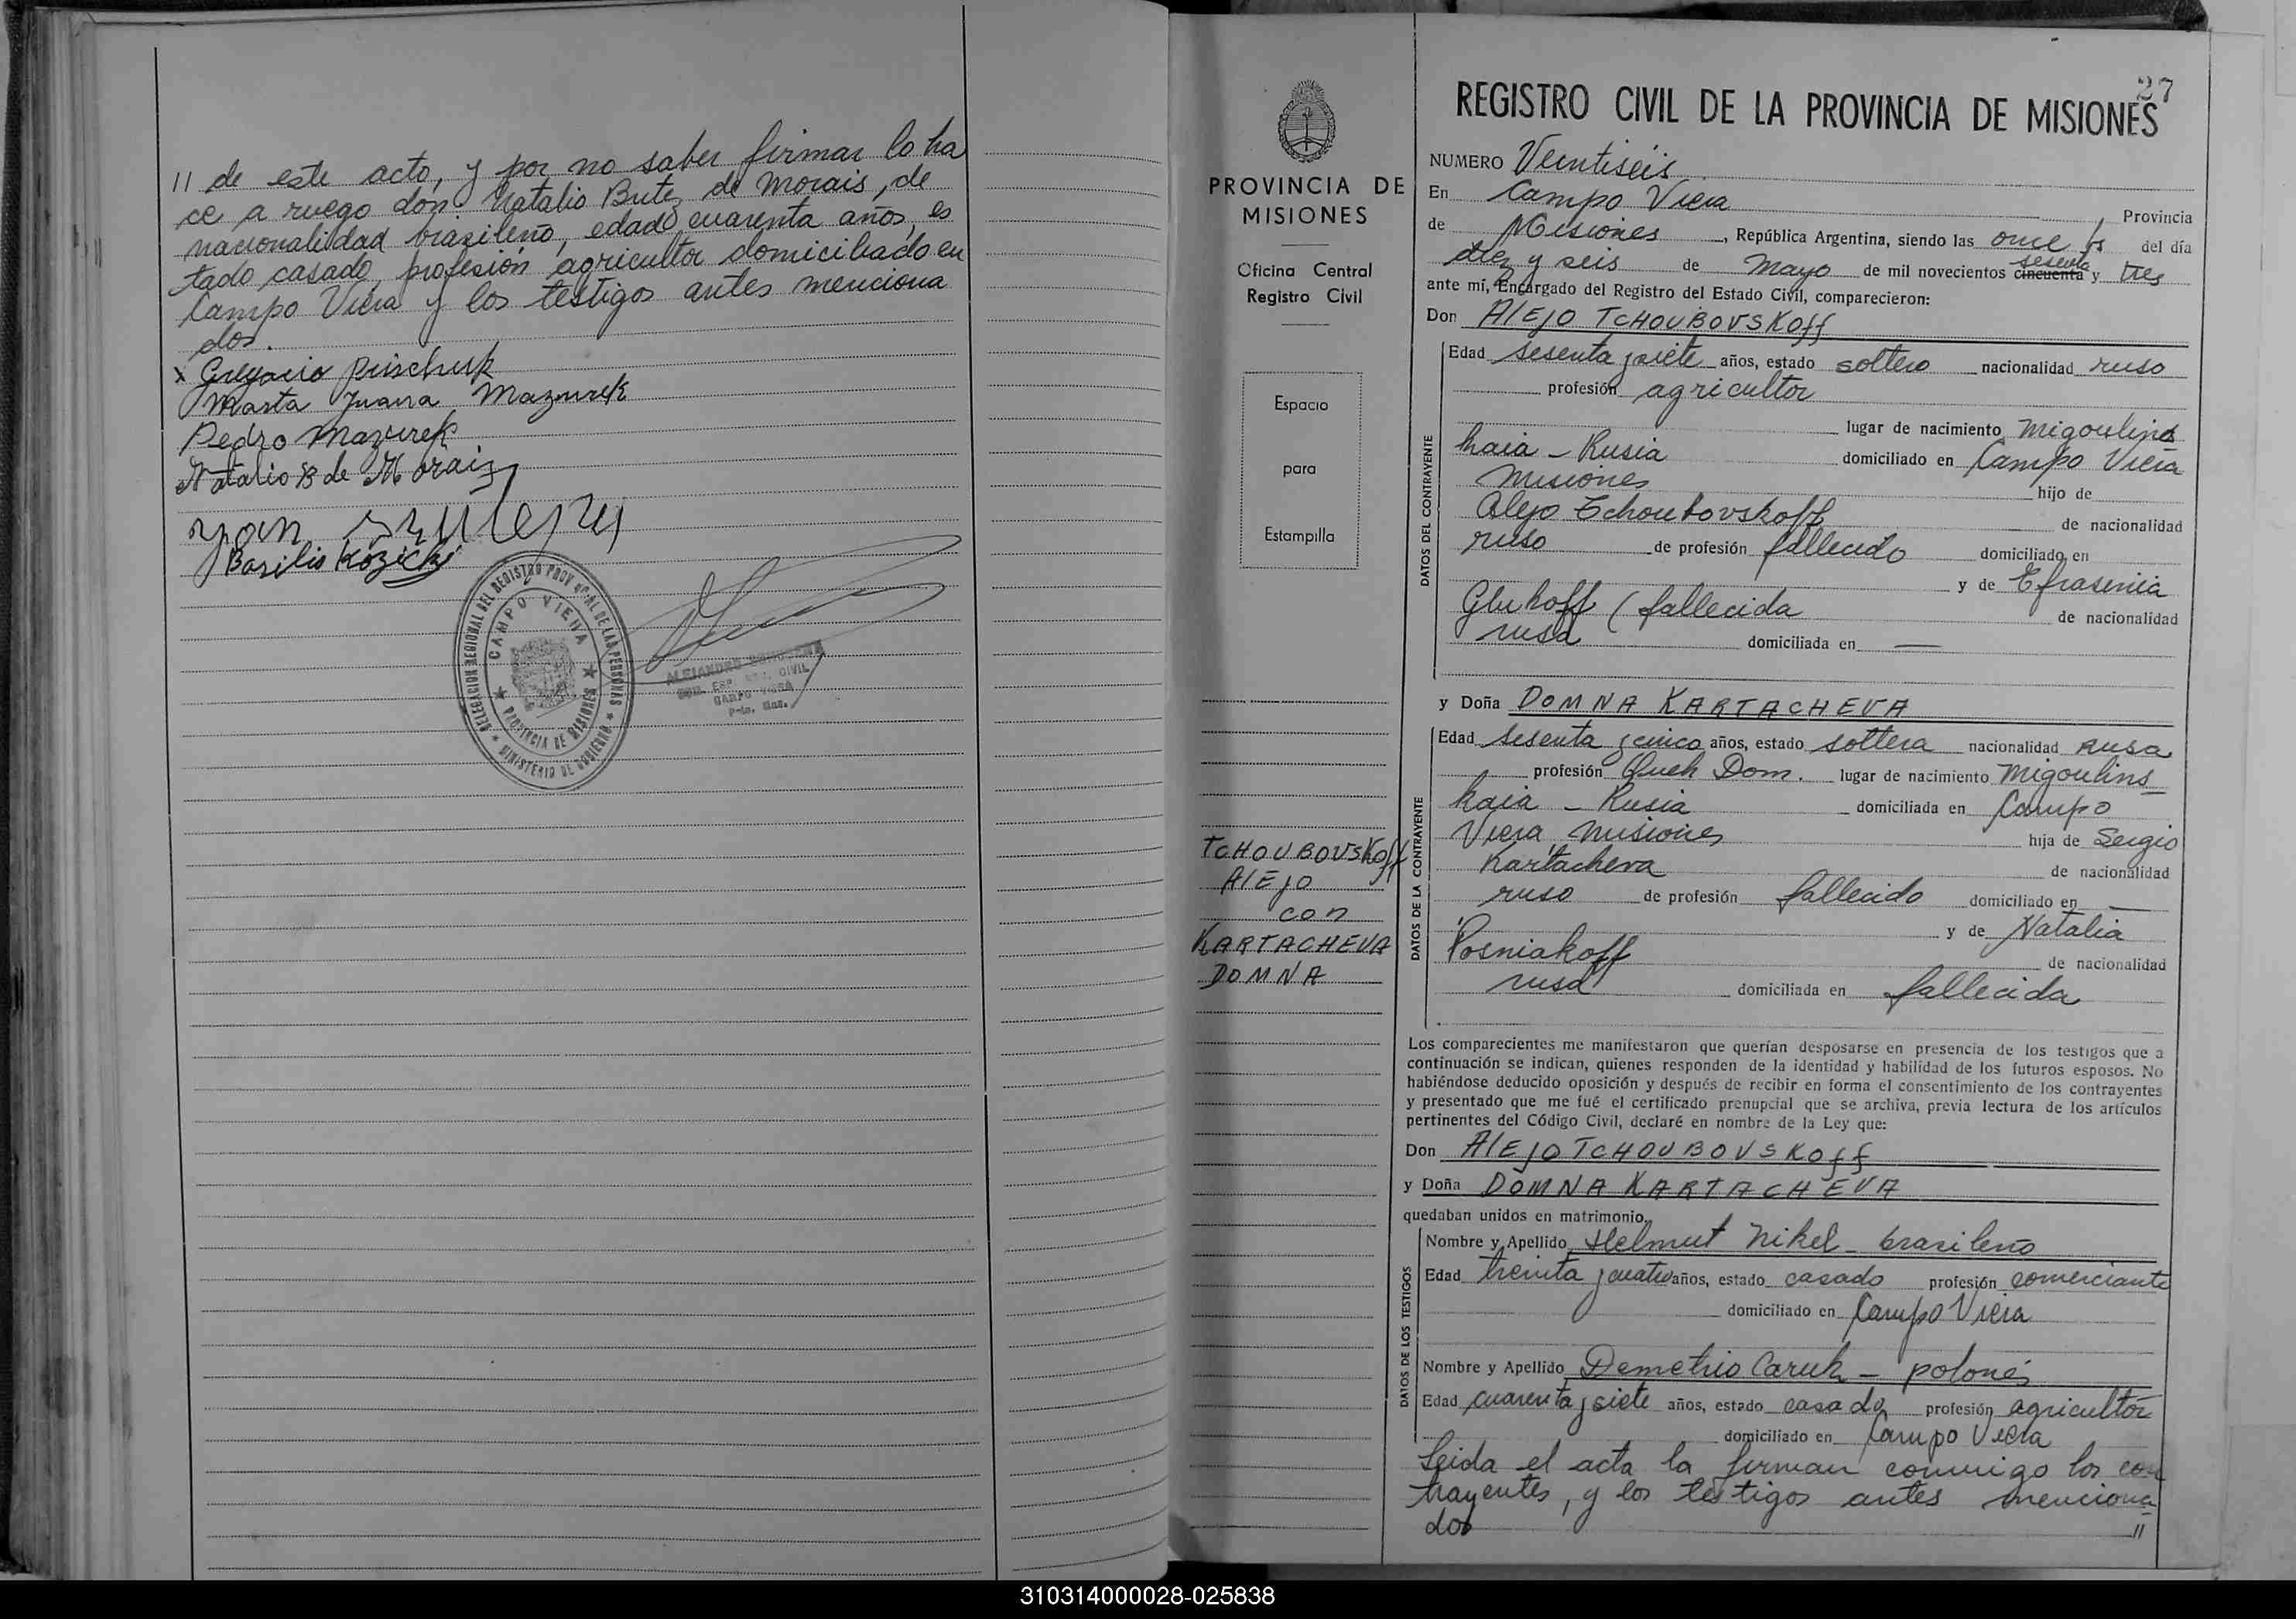 // de este acto, y por no saber firmar lo ha
ce a ruego don Natalio Butez de Morais, de
nacionalidad brasileño, edad cuarenta años, es
tado casado, profesión agricultor domiciliado en
Campo Viera y los testigos antes menciona
dos.
x Gregorio Prischuk
Marta Juana Mazurek
Pedro Mazurek
Natalio B de Morais
Basilio Kozicki
DELEGACION REGIONAL DEL REGISTRO PROVINCIAL DE LAS PERSONAS
CAMPO VIERA
PROVINCIA DE MISIONES
MINISTERIO DE GOBIERNO
ALEJANDRO
CIVIL
CAMPO VIERA
Pcia. Mnes.
27
PROVINCIA DE
MISIONES
Oficina Central
Registro Civil
Espacio
para
Estampilla
TCHOUBOVSKOff
AlEjO
con
KARTACHEVA
DOMNA
REGISTRO CIVIL DE LA PROVINCIA DE MISIONES
NUMERO Veintiseis
En Campo Viera, Provincia
de Misiones, República Argentina, siendo las once hs del día
diez y seis de Mayo de mil novecientos cincuenta sesenta y tres
ante mí, Encargado del Registro del Estado Civil, comparecieron:
Don AlEjO TCHOUBOVSKOff
DATOS DEL CONTRAYENTE
Edad sesenta y siete años, estado soltero nacionalidad ruso
profesión agricultor
lugar de nacimiento Migoulins
kaia - Rusia domiciliado en Campo Viera
Misiones hijo de
Alejo Tchoubovskoff de nacionalidad
ruso de profesión fallecido domiciliado en
y de Efrasenia
Gluhoff (fallecida de nacionalidad
rusa domiciliada en —
y Doña DOMNA KARTACHEVA
DATOS DE LA CONTRAYENTE
Edad sesenta y cinco años, estado soltera nacionalidad rusa
profesión Queh Dom. lugar de nacimiento Migoulins
kaia - Rusia domiciliada en Campo
Viera Misiones hija de Sergio
Kartacheva de nacionalidad
ruso de profesión fallecido domiciliado en —
y de Natalia
Posniakoff de nacionalidad
rusa domiciliada en fallecida
Los comparecientes me manifestaron que querían desposarse en presencia de los testigos que a
continuación se indican, quienes responden de la identidad y habilidad de los futuros esposos. No
habiéndose deducido oposición y después de recibir en forma el consentimiento de los contrayentes
y presentado que me fué el certificado prenupcial que se archiva, previa lectura de los artículos
pertinentes del Código Civil, declaré en nombre de la Ley que:
Don AlEjO TCHOUBOVSKOff
y Doña DOMNA KARTACHEVA
quedaban unidos en matrimonio
DATOS DE LOS TESTIGOS
Nombre y Apellido Helmut Nikel - brasileño
Edad treinta y cuatro años, estado casado profesión comerciante
domiciliado en Campo Viera
Nombre y Apellido Demetrio Caruk - polonés
Edad cuarenta y siete años, estado casado profesión agricultor
domiciliado en Campo Viera
Leida el acta la firman conmigo los con
trayentes, y los testigos antes menciona
dos //
310314000028-025838